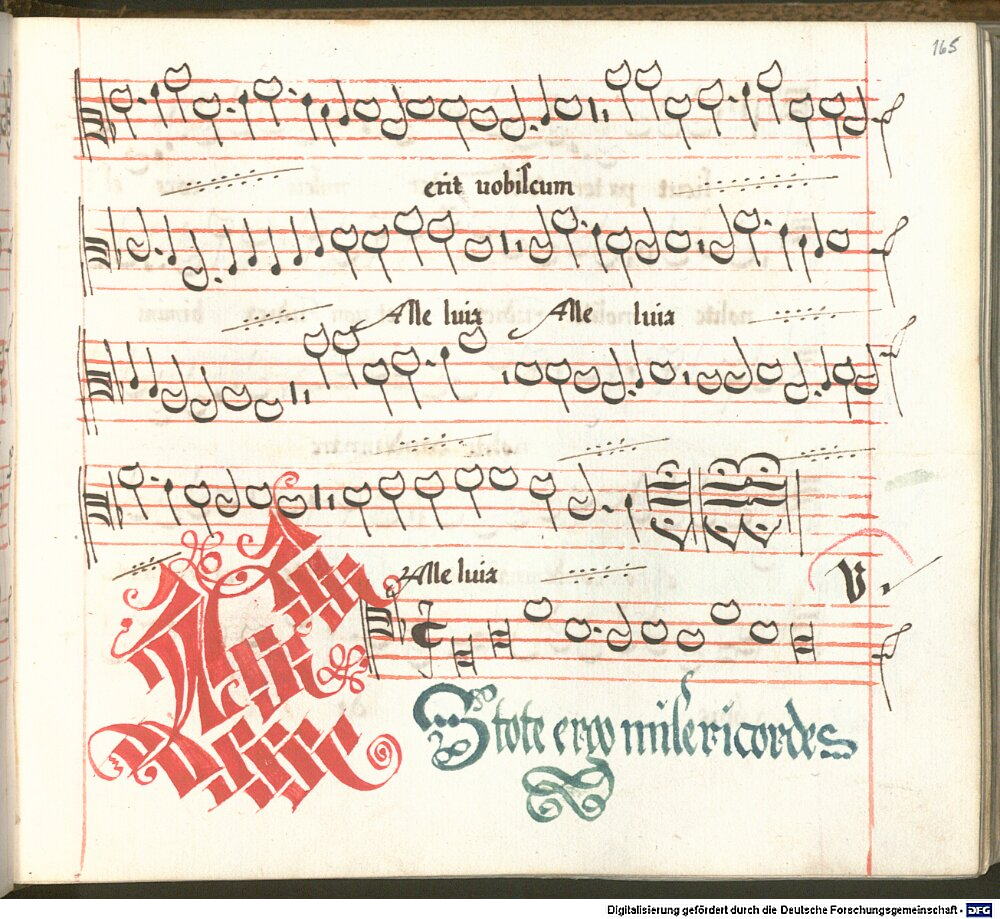 165
erit vobiscum
Alle luia Alle luia
Alle luia
V.
Estote ergo misericordes
Digitalisierung gefördert durch die Deutsche Forschungsgemeinschaft - DFG